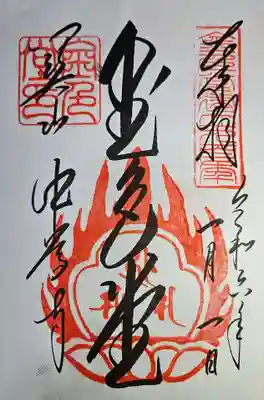 奉拝
令和六年
一月一日
金色堂
関山
中尊寺